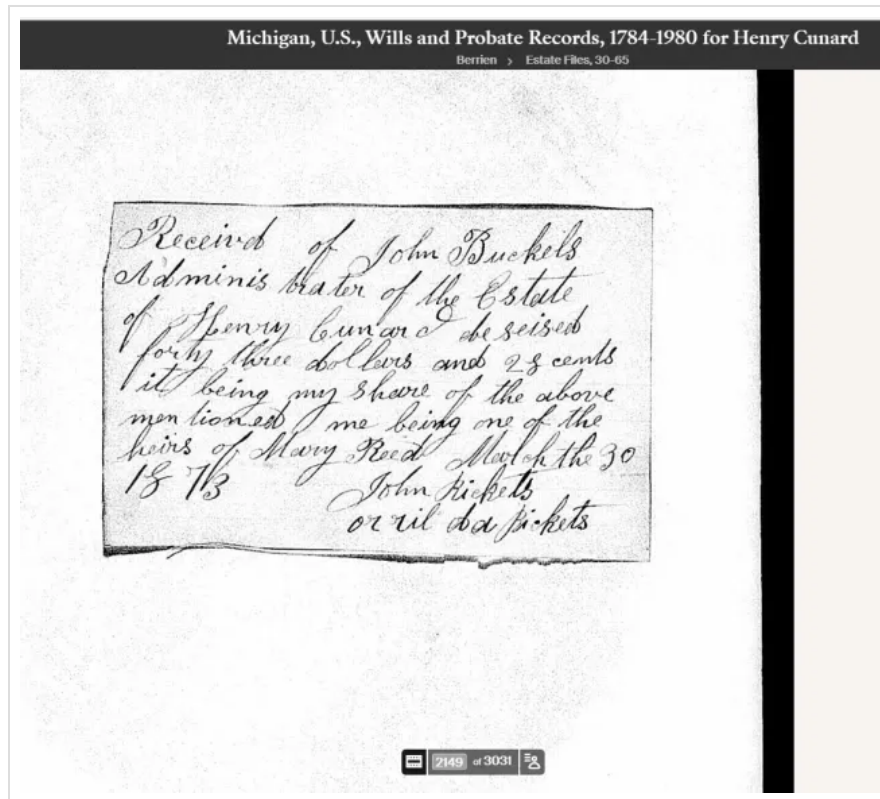 Michigan, U.S., Wills and Probate Records, 1784-1980 for Henry Cunard
Berrien > Estate Files, 30-65
Receivd of John Buckels
Adminis trater of the Estate
of Henry Cunard deseised
forty three dollars and 28 cents
it being my share of the above
men tioned me being one of the
heirs of Mary Reed March the 30
1873 John Rickets
or ril da Rickets
2149 of 3031